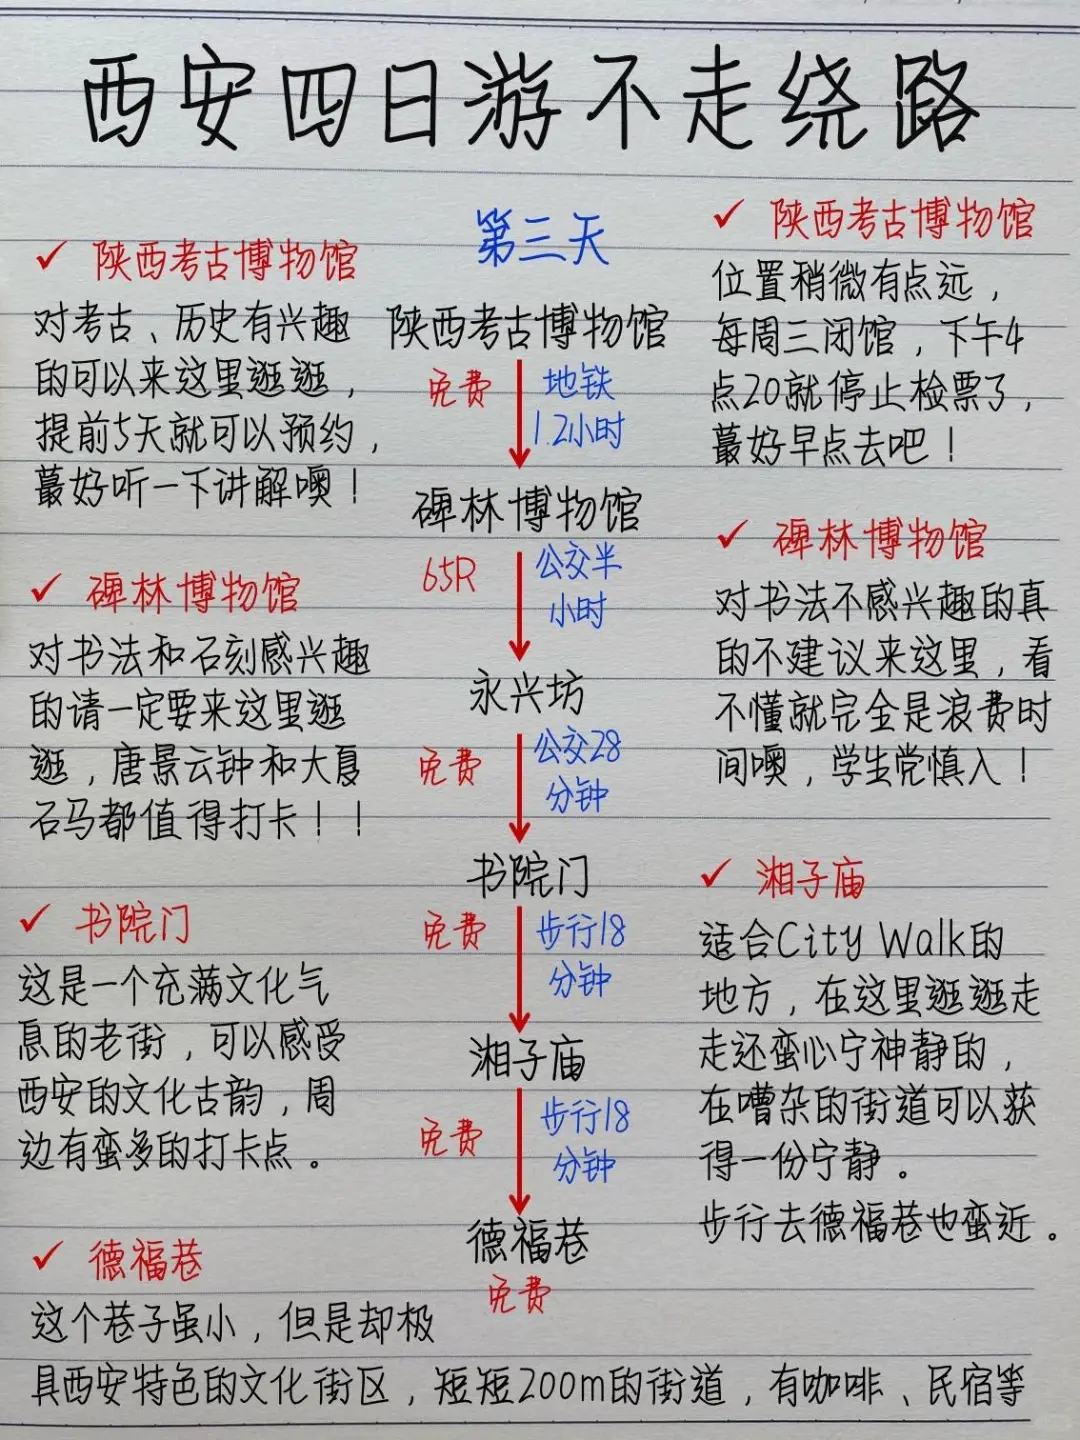 西安四日游不走绕路
第三天
✓ 陕西考古博物馆
对考古、历史有兴趣
的可以来这里逛逛，
提前5天就可以预约，
蕞好听一下讲解噢！
✓ 碑林博物馆
对书法和石刻感兴趣
的请一定要来这里逛
逛，唐景云钟和大夏
石马都值得打卡！！
✓ 书院门
这是一个充满文化气
息的老街，可以感受
西安的文化古韵，周
边有蛮多的打卡点。
✓ 德福巷
这个巷子虽小，但是却极
具西安特色的文化街区，短短200m的街道，有咖啡、民宿等
陕西考古博物馆
免费
地铁
1.2小时
碑林博物馆
65R
公交半
小时
永兴坊
免费
公交28
分钟
书院门
免费
步行18
分钟
湘子庙
免费
步行18
分钟
德福巷
免费
✓ 陕西考古博物馆
位置稍微有点远，
每周三闭馆，下午4
点20就停止检票了，
蕞好早点去吧！
✓ 碑林博物馆
对书法不感兴趣的真
的不建议来这里，看
不懂就完全是浪费时
间噢，学生党慎入！
✓ 湘子庙
适合City Walk的
地方，在这里逛逛走
走还蛮心宁神静的，
在嘈杂的街道可以获
得一份宁静。
步行去德福巷也蛮近。